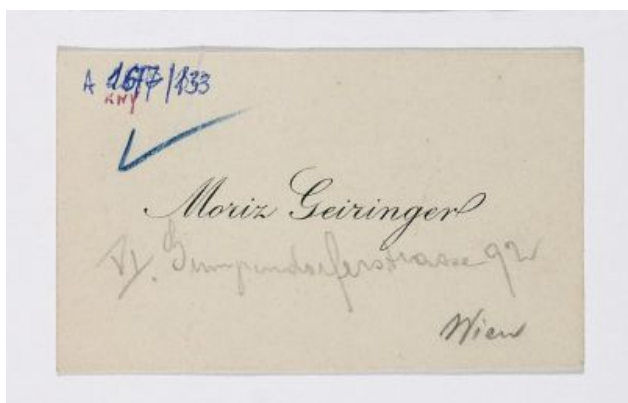 A 167/133
Moriz Geiringer
VI. Gumpendorferstrasse 92
Wien